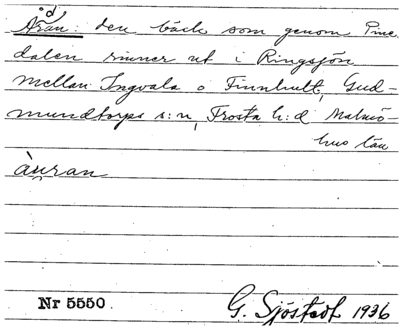 Åran: den bäck som genom Pine
dalen rinner ut i Ringsjön
mellan Ingvala o Finnhult, Gud-
mundtorps s:n, Frosta h:d Malmö-
hus län
àu̯ran
Nr 5550.
G. Sjöstedt 1936